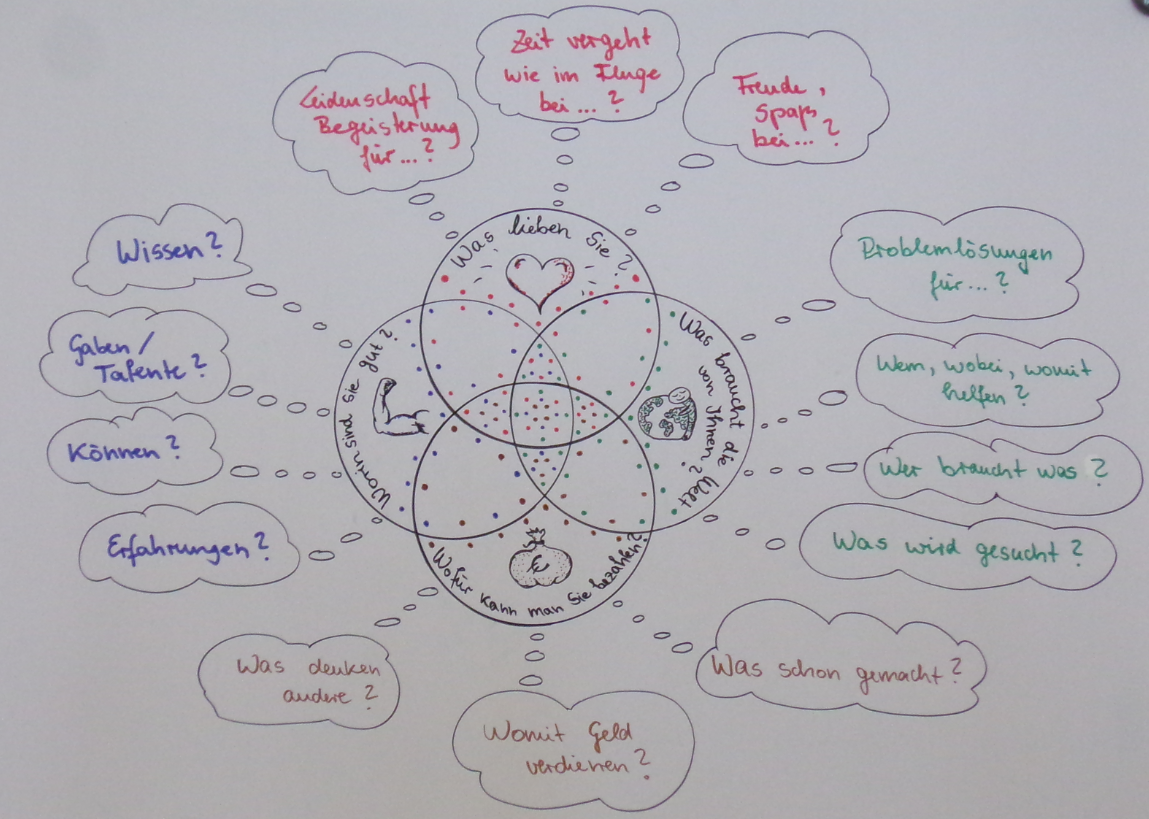 Zeit vergeht
wie im Fluge
bei ... ?
Leidenschaft
Begeisterung
für ... ?
Freude,
Spaß
bei ... ?
Wissen?
Gaben /
Talente?
Können?
Erfahrungen?
Was lieben Sie?
Worin sind Sie gut?
Was braucht die Welt
von Ihnen?
Wofür kann man Sie bezahlen?
€
Problemlösungen
für ... ?
Wem, wobei, womit
helfen?
Wer braucht was?
Was wird gesucht?
Was denken
andere?
Womit Geld
verdienen?
Was schon gemacht?